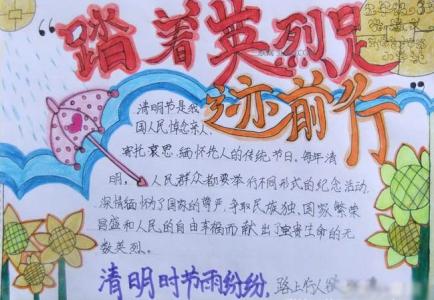 踏着英烈足
迹前行
清明节是我
国人民悼念亲人,
寄托哀思,缅怀先人的传统节日,每年清
明,人民群众都要举行不同形式的纪念活动
深情缅怀为了国家的尊严,争取民族独,国家繁荣
昌盛和人民的自由幸福而献出了宝贵生命的无
数英烈。
清明时节雨纷纷,
路上行人欲